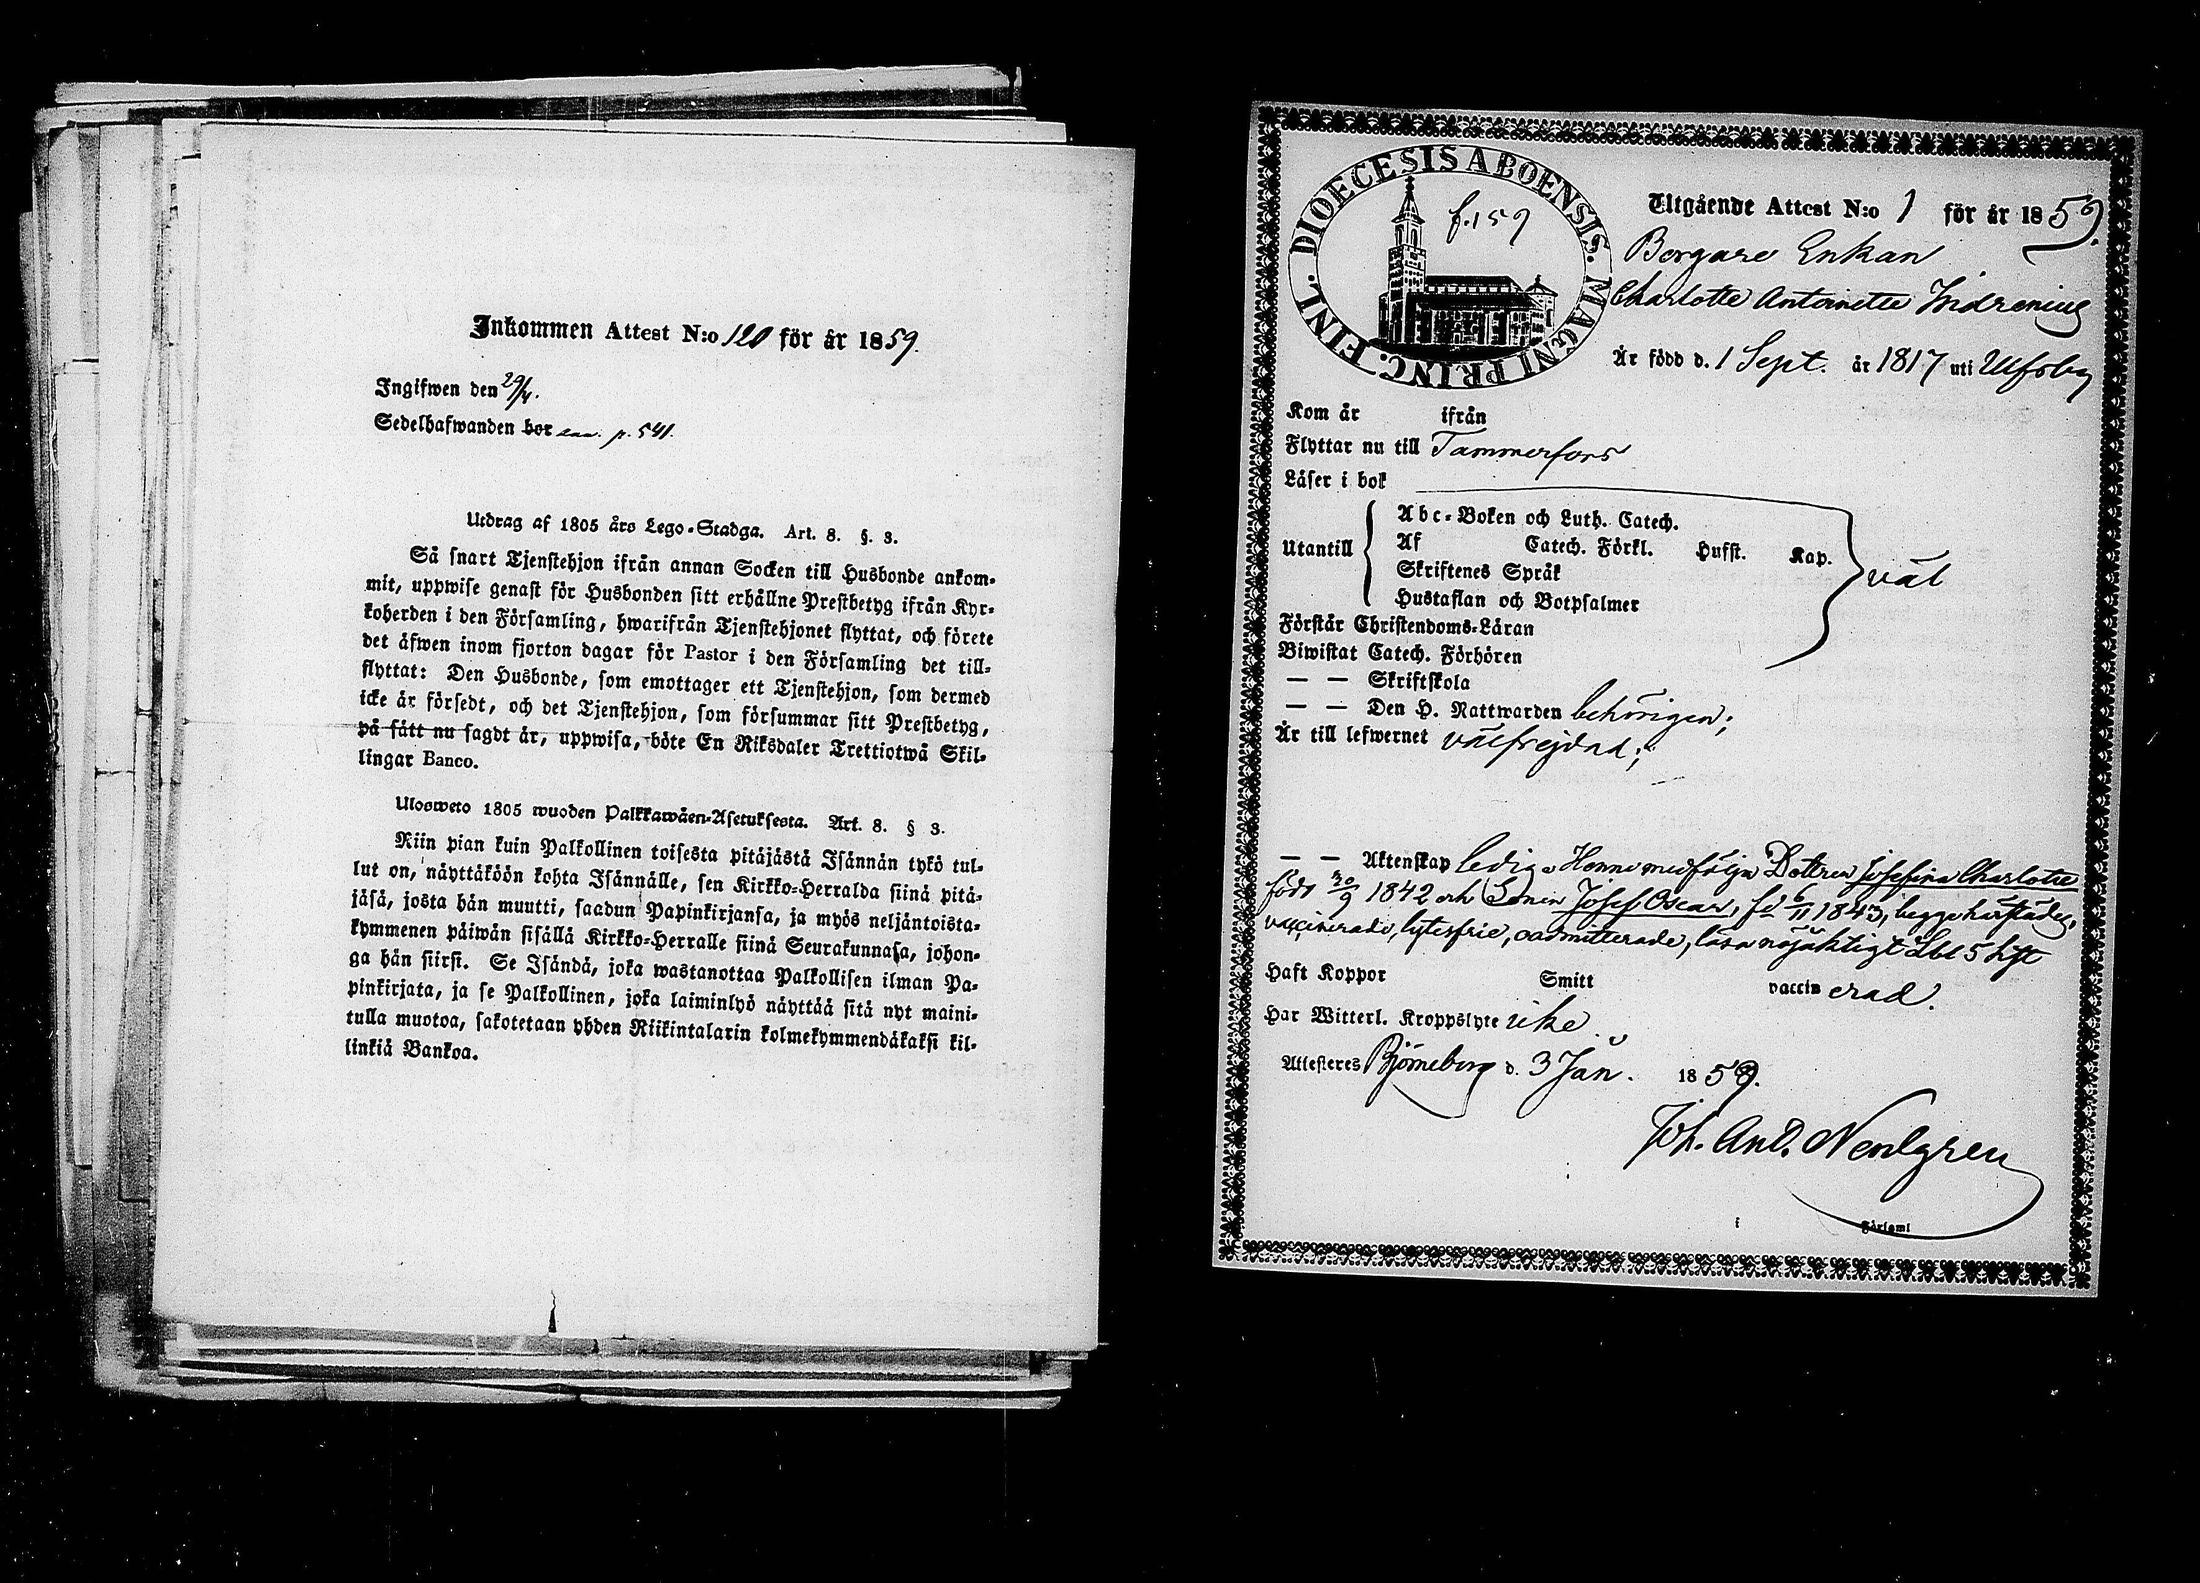 Inkommen Attest N:o 120 för år 1859.
Ingifwen den 29/4.
Sedelhafwanden bor p. 541.
Utdrag af 1805 års Lego-Stadga. Art. 8. §. 3.
Så snart Tjenstehjon ifrån annan Socken till Husbonde ankom-
mit, uppwise genast för Husbonden sitt erhållne Prestbetyg ifrån Kyr-
koherden i den Församling, hwarifrån Tjenstehjonet flyttat, och förete
det äfwen inom fjorton dagar för Pastor i den Församling det till-
flyttat: Den Husbonde, som emottager ett Tjenstehjon, som dermed
icke är försedt, och det Tjenstehjon, som försummar sitt Prestbetyg,
på sätt nu sagdt är, uppwisa, böte En Riksdaler Trettiotwå Skil-
lingar Banco.
Ulosweto 1805 wuoden Palkkawäen-Asetuksesta. Art. 8. § 3.
Niin pian kuin Palkollinen toisesta pitäjästä Isännän tykö tul-
lut on, näyttäköön kohta Isännälle, sen Kirkko-Herralda siinä pitä-
jäsä, josta hän muutti, saadun Papinkirjansa, ja myös neljäntoista-
kymmenen päiwän sisällä Kirkko-Herralle siinä Seurakunnasa, johon-
ga hän siirsi. Se Isändä, joka wastanottaa Palkollisen ilman Pa-
pinkirjata, ja se Palkollinen, joka laiminlyö näyttää sitä nyt maini-
tulla muotoa, sakotetaan yhden Riikintalarin kolmekymmendäkaksi kil-
linkiä Bankoa.
DIOECESIS ABOENSIS. MAGNI PRINC. FINL.
f. 159
Utgående Attest N:o 1 för år 1859.
Borgare Enkan
Charlotte Antoinette Indrenius
Är född d. 1 Sept. år 1817 uti Ulfsby
Kom år ifrån
Flyttar nu till Tammerfors
Läser i bok
Utantill
Abc-Boken och Luth. Catech.
Af Catech. Förkl. Husst. Kap.
Skriftenes Språk
Hustaflan och Botpsalmer
väl
Förstår Christendoms-Läran
Biwistat Catech. Förhören
— — Skriftskola
— — Den H. Nattwarden behörigen;
Är till lefwernet välfrejdad;
— — Äktenskap ledig. Henne medfölja Dottren Josefina Charlotte
född 30/9 1842 och Sonen Josef Oscar, fd 6/11 1843, begge härstädes,
vaccinerade, lytesfrie, oadmitterade, läsa nöjaktigt Lbl 5 hst
Haft Koppor Smitt vaccin erad.
Har Witterl. Kroppslyte icke
Attesteres Björneborg d. 3 Jan. 1859.
Joh. And. Nordgren
i Församl